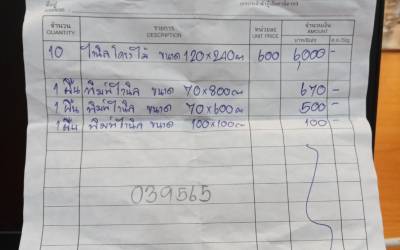 จำนวน QUANTITY รายการ DESCRIPTION หน่วยละ UNIT PRICE จำนวนเงิน AMOUNT
10 ไวนิลโครงไม้ ขนาด 120×240ซม 600 6,000 -
1 ผืน พิมพ์ไวนิล ขนาด 70×800ซม 670 -
1 ผืน พิมพ์ไวนิล ขนาด 70×600ซม 500 -
1 ผืน พิมพ์ไวนิล ขนาด 100×100ซม 100 -
039565